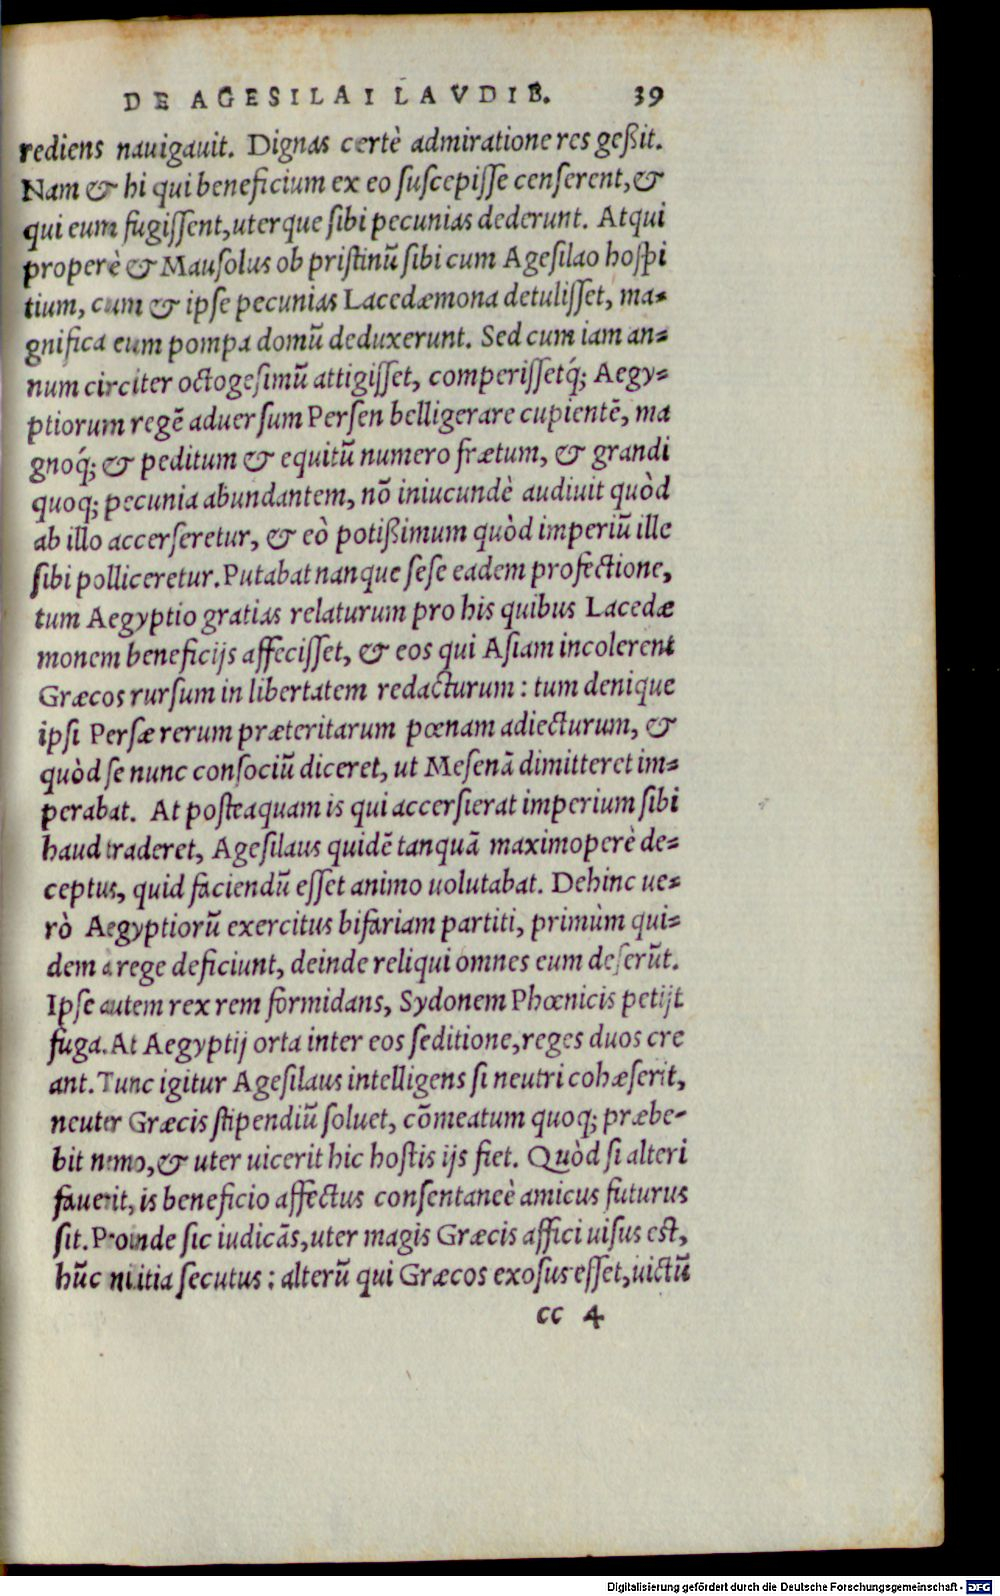 DE AGESILAI LAVDIB. 39
rediens nauigauit. Dignas certè admiratione res geßit.
Nam & hi qui beneficium ex eo ſuſcepiſſe cenſerent, &
qui eum fugiſſent, uterque ſibi pecunias dederunt. Atqui
properè & Mauſolus ob priſtinũ ſibi cum Ageſilao hoſpi
tium, cum & ipſe pecunias Lacedæmona detuliſſet, ma-
gnifica eum pompa domũ deduxerunt. Sed cum iam an-
num circiter octogeſimũ attigiſſet, comperiſſetq́; Aegy-
ptiorum regẽ aduerſum Perſen belligerare cupientẽ, ma
gnoq́; & peditum & equitũ numero frætum, & grandi
quoq; pecunia abundantem, nõ iniucundè audiuit quòd
ab illo accerſeretur, & eò potißimum quòd imperiũ ille
ſibi polliceretur. Putabat nanque ſeſe eadem profectione,
tum Aegyptio gratias relaturum pro his quibus Lacedæ
monem beneficijs affeciſſet, & eos qui Aſiam incolerent
Græcos rurſum in libertatem redacturum : tum denique
ipſi Perſæ rerum præteritarum pœnam adiecturum, &
quòd ſe nunc conſociũ diceret, ut Meſenã dimitteret im-
perabat. At poſteaquam is qui accerſierat imperium ſibi
haud traderet, Ageſilaus quidẽ tanquã maximoperè de-
ceptus, quid faciendũ eſſet animo uolutabat. Dehinc ue-
rò Aegyptiorũ exercitus bifariam partiti, primùm qui-
dem à rege deficiunt, deinde reliqui omnes eum deſerũt.
Ipſe autem rex rem formidans, Sydonem Phœnicis petijt
fuga. At Aegyptij orta inter eos ſeditione, reges duos cre
ant. Tunc igitur Ageſilaus intelligens ſi neutri cohæſerit,
neuter Græcis ſtipendiũ ſoluet, cõmeatum quoq; præbe-
bit nemo, & uter uicerit hic hoſtis ijs fiet. Quòd ſi alteri
fauerit, is beneficio affectus conſentaneè amicus futurus
ſit. Proinde ſic iudicãs, uter magis Græcis affici uiſus eſt,
hũc militia ſecutus : alterũ qui Græcos exoſus eſſet, uictũ
cc 4
Digitalisierung gefördert durch die Deutsche Forschungsgemeinschaft - DFG